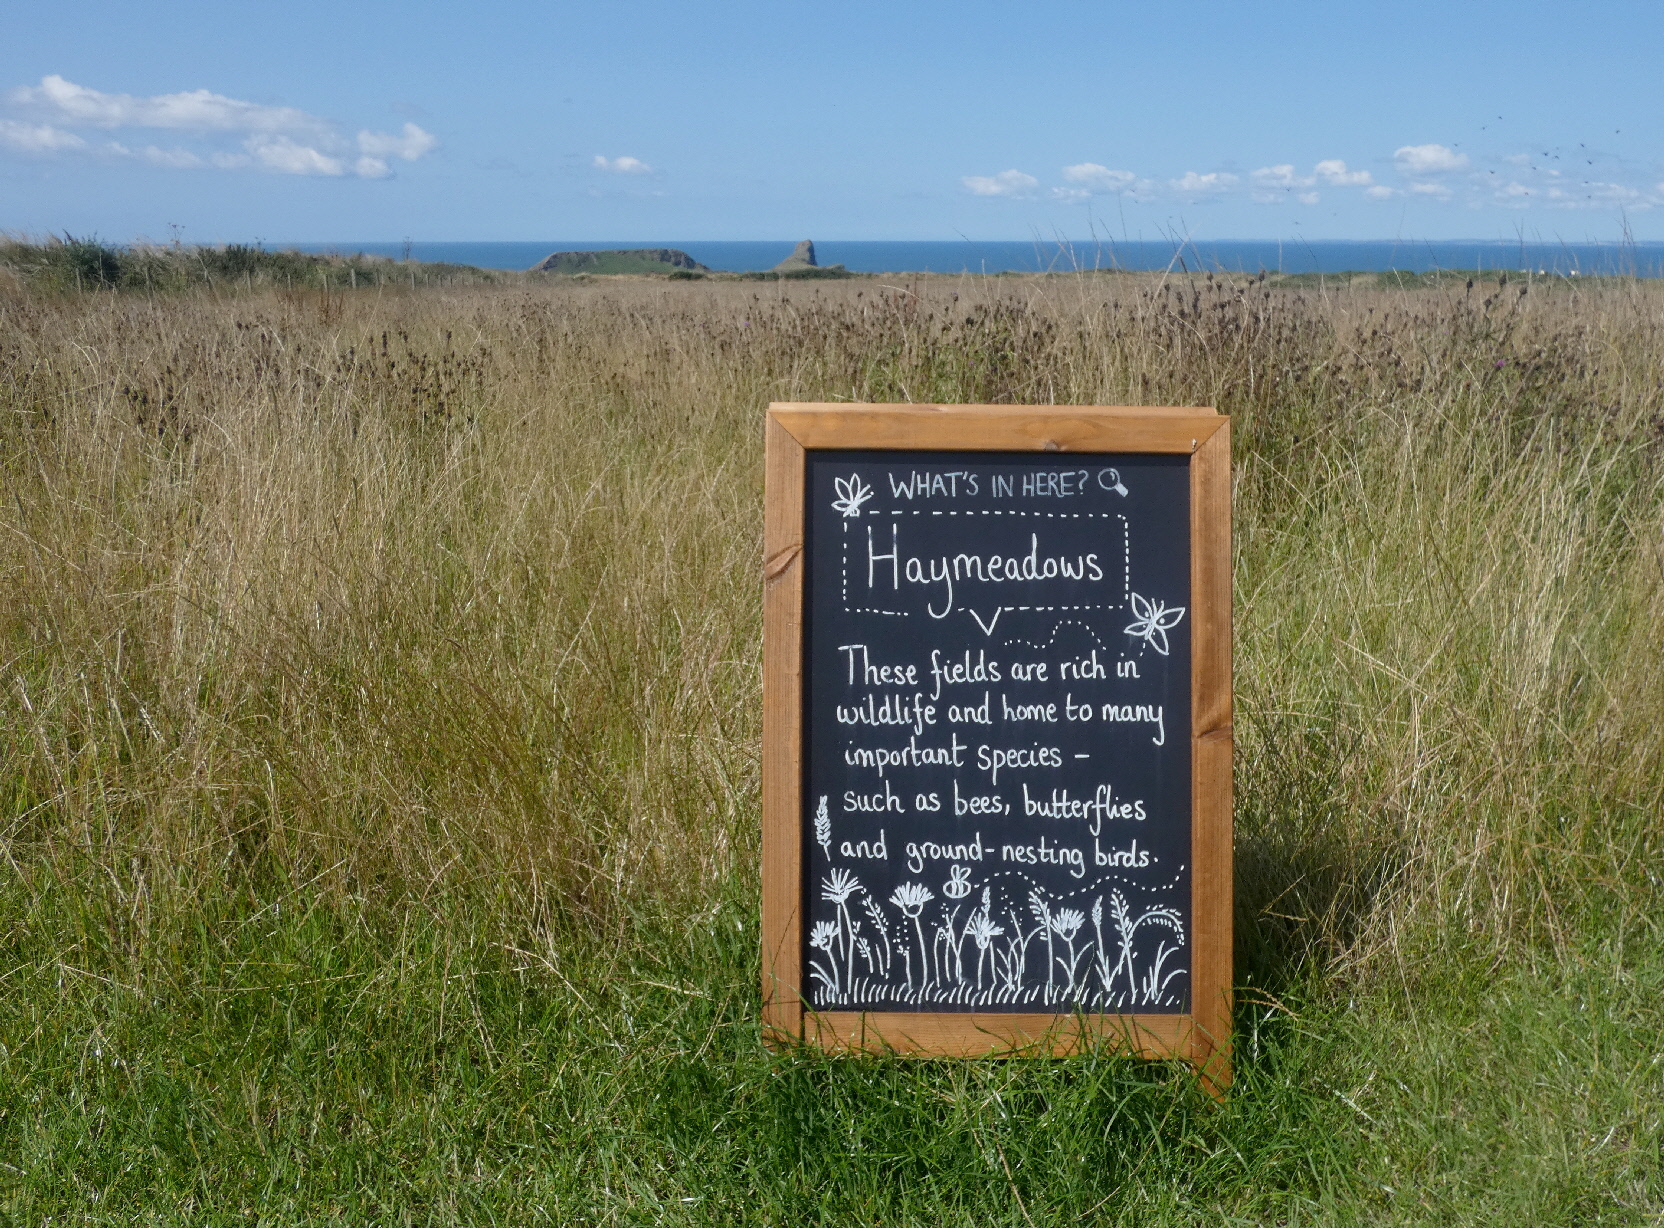 WHAT'S IN HERE?
Haymeadows
These fields are rich in
wildlife and home to many
important species –
such as bees, butterflies
and ground-nesting birds.